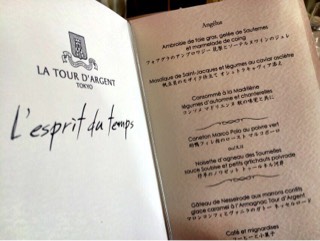 LA TOUR D'ARGENT
TOKYO
L'esprit du temps
Angélus
Ambroisie de foie gras, gelée de Sauternes
et marmelade de coing
Mosaïque de Saint-Jacques et légumes au caviar osciètre
Consommé à la Madrilène
légumes d'automne et chanterelles
コンソメ マドリレンヌ 秋の味覚と共に
Caneton Marco Polo au poivre vert
ou/又は
Noisette d'agneau des Tournelles
sauce Soubise et petits artichauts poivrade
Gâteau de Nesselrode aux marrons confits
glace caramel à l'Armagnac Tour d'Argent
Café et mignardises
コーヒーと小菓子